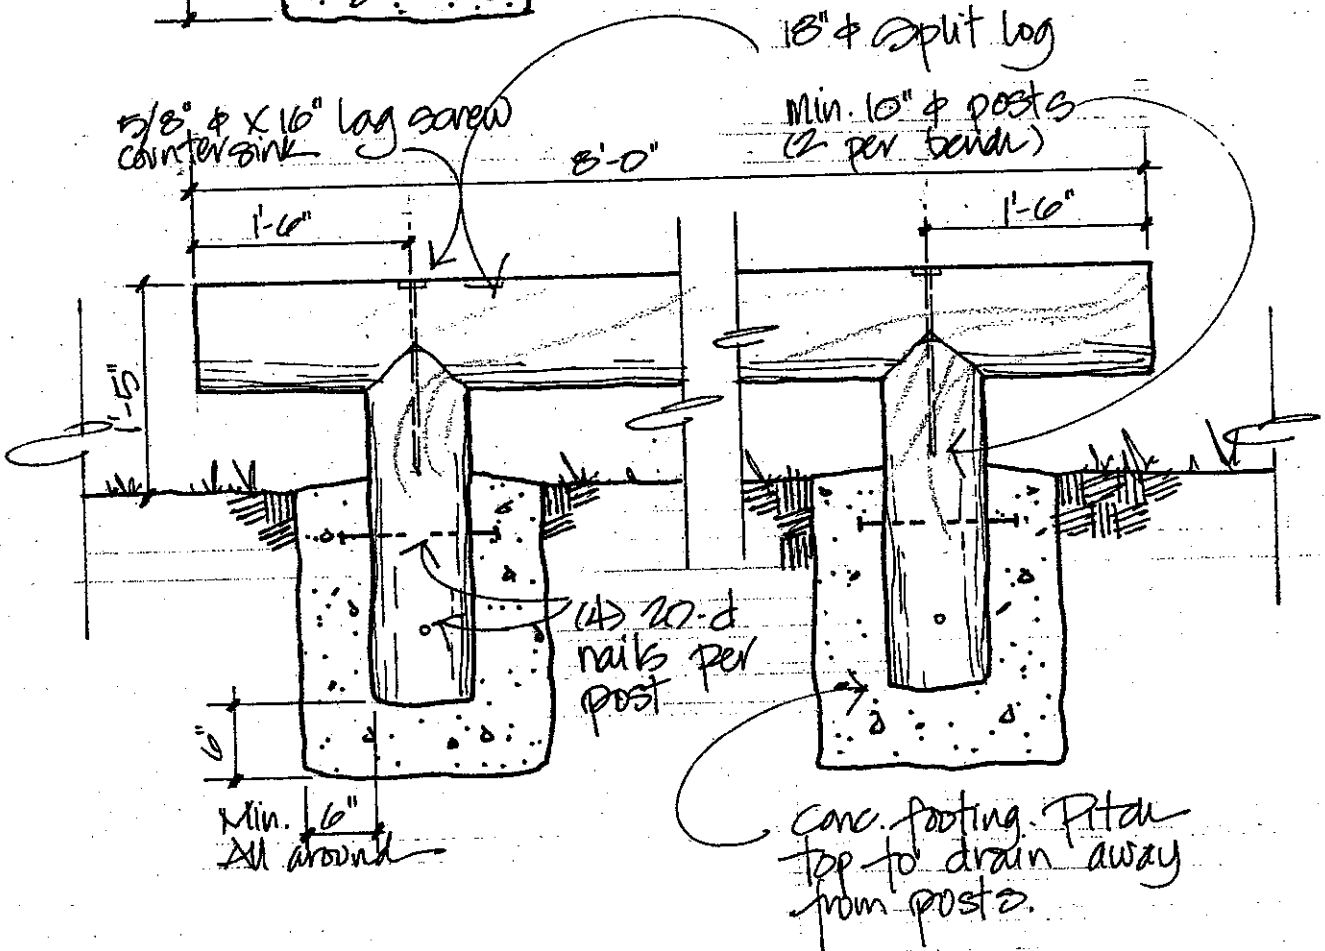 18"ϕ Split log
5/8" ϕ X 16" lag screw
countersink
Min. 10" ϕ posts
(2 per bench)
8'-0"
1'-6"
1'-6"
1'-5"
(4) 20-d
nails per
post
6"
Min. 6"
All around
conc. footing. Pitch
top to drain away
from posts.